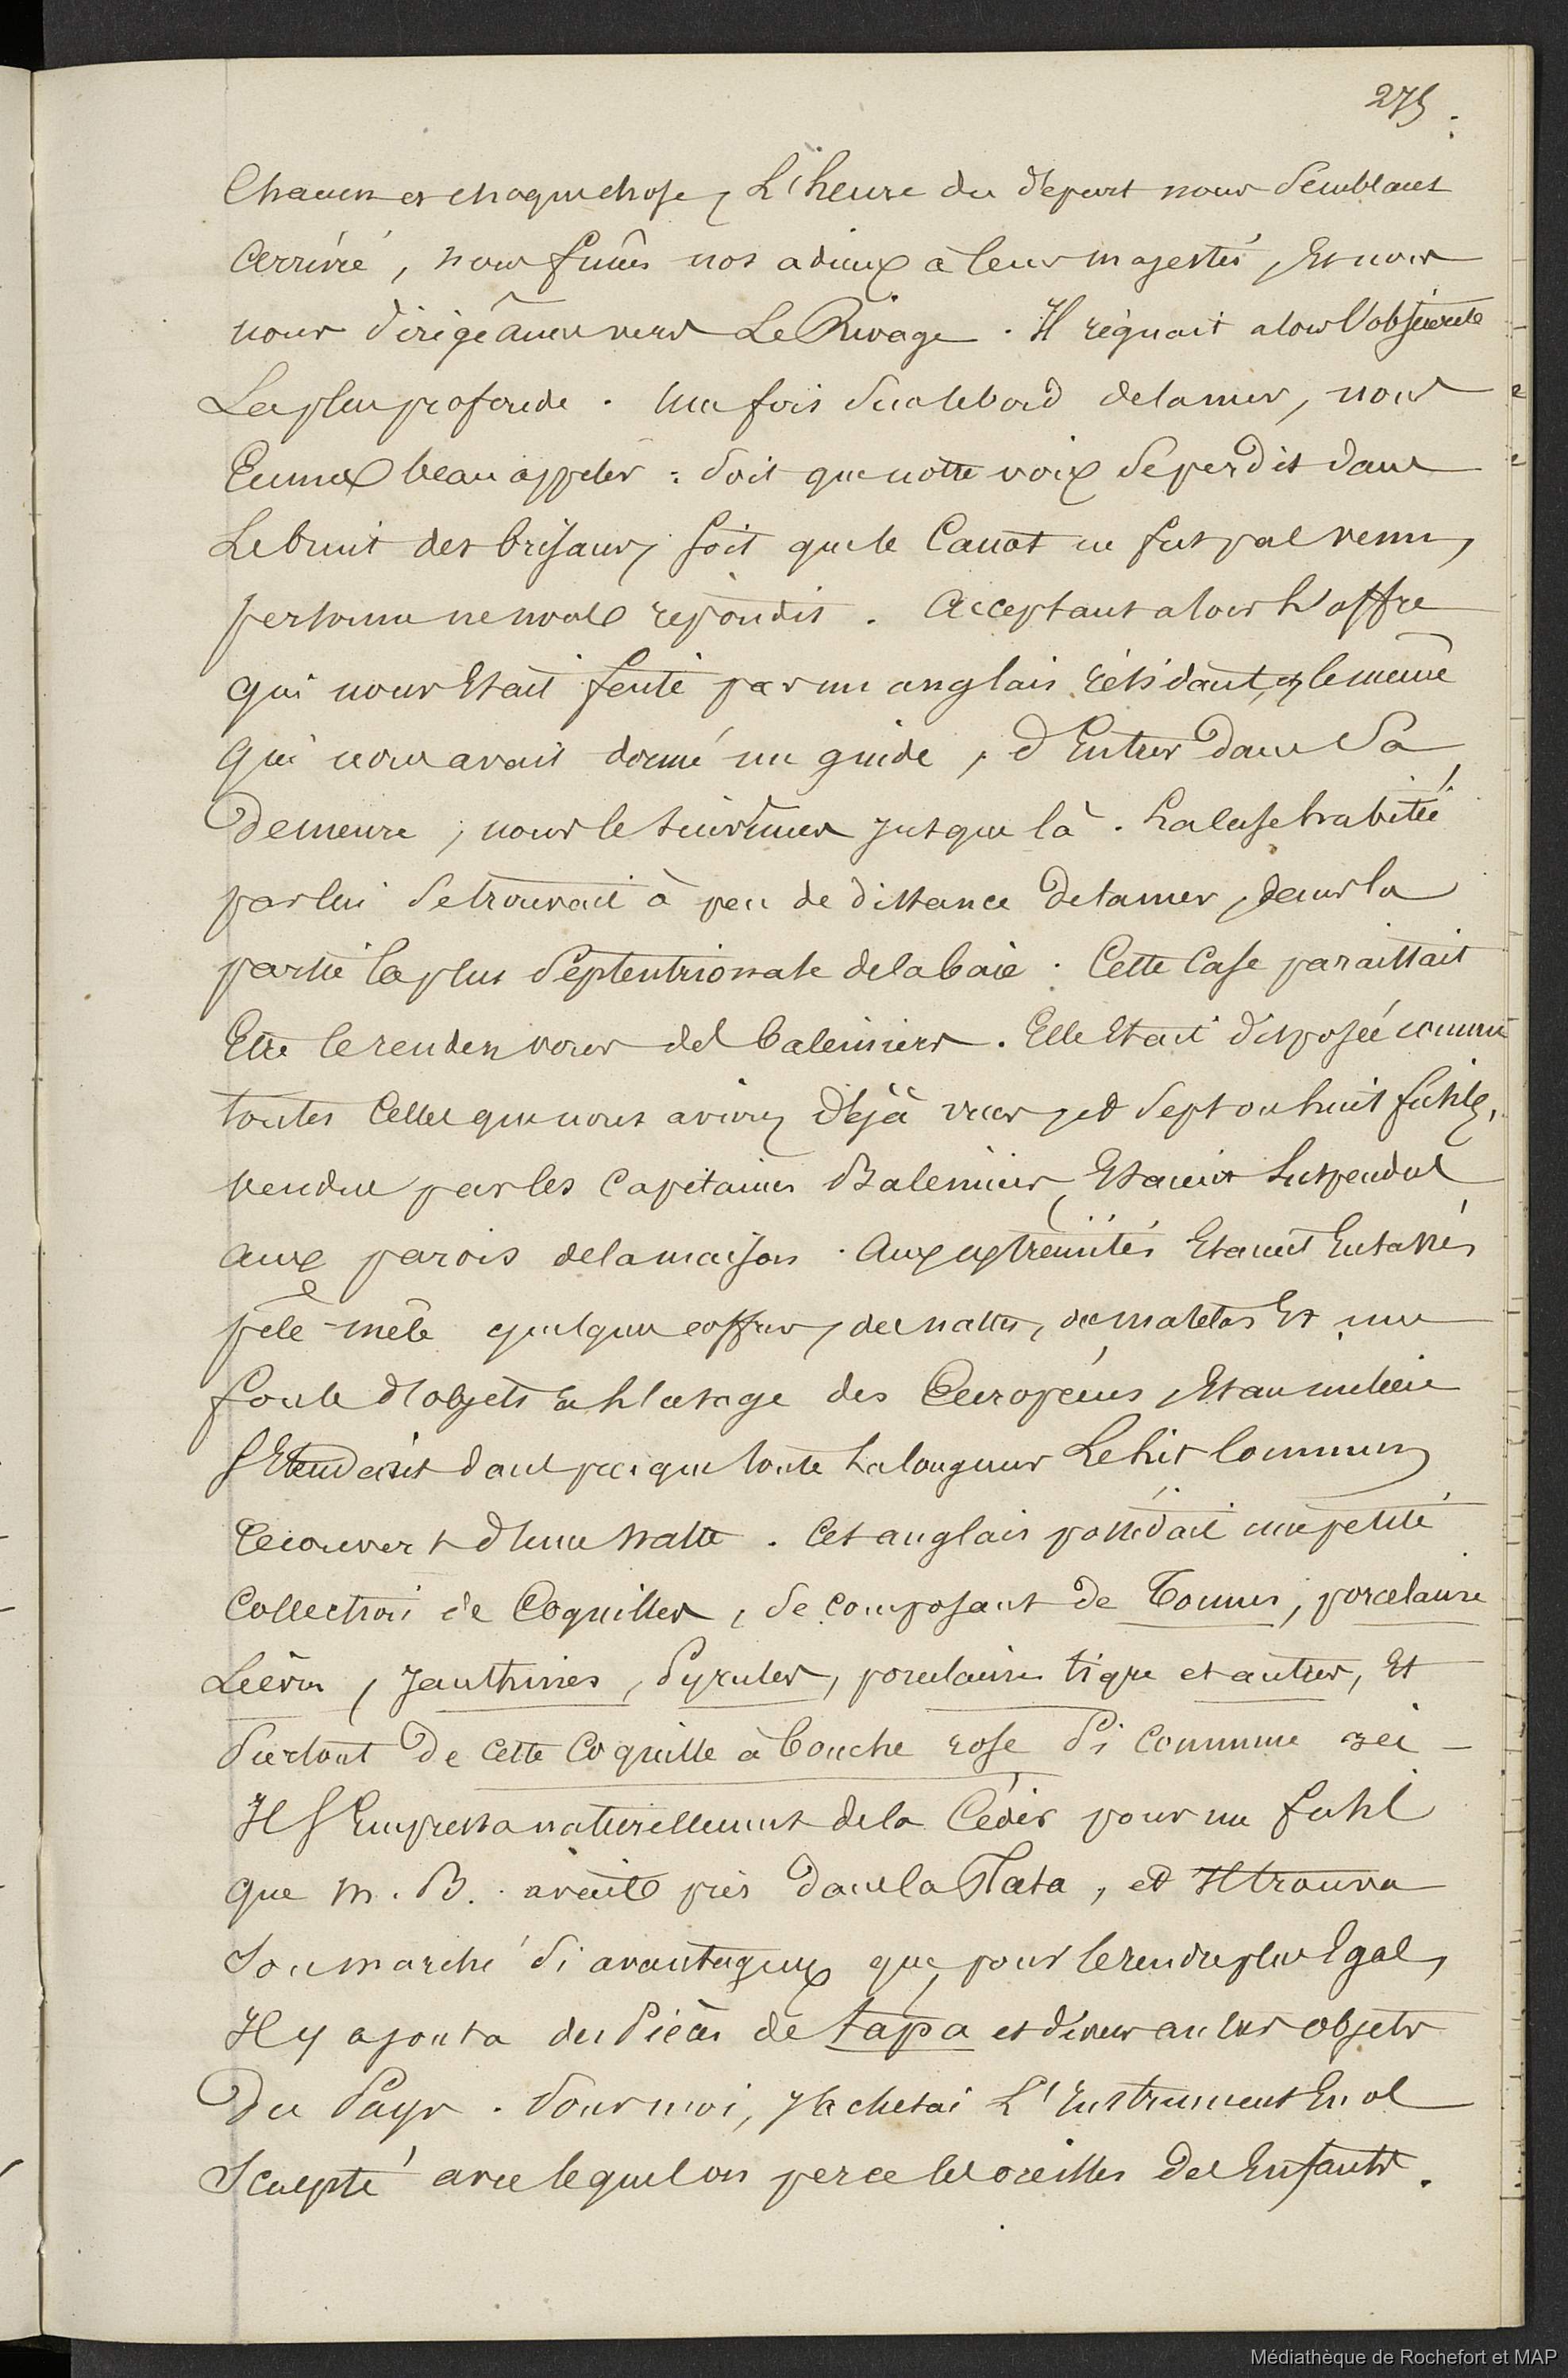 275.
Chacun et chaque chose, L'heure du départ nous semblant
arrivée, nous fîmes nos adieux à leurs majestés, Et nous
nous dirigeâmes vers Le Rivage. Il régnait alors l'obscurité
La plus profonde. Une fois sur le bord de la mer, nous
Eumes beau appeler : soit que notre voix se perdit dans
Le bruit des brisans, soit que le Canot ne fut pas venu,
personne ne nous répondit. Acceptant alors L'offre
qui nous Etait faite par un anglais résidant, et le même
qui nous avait donné un guide, d'Entrer dans Sa
Demeure, nous le suivîmes jusque là. La case habitée
par lui se trouvait à peu de distance de la mer, dans la
partie la plus septentrionale de la baie. Cette Case paraissait
Etre le rendez vous des baleiniers. Elle Etait disposée comme
toutes Celles que nous avions déjà vues, et sept ou huit fusils,
vendus par les Capitaines Baleiniers, Etaient suspendus
aux parois de la maison. Aux extrémités Etaient Entassés
pêle-mêle quelques coffres, des nattes, des matelas Et une
foule d'objets à L'usage des Européens, Et au milieu
s'Etendait dans presque toute La longueur Le Lit Commun
recouvert d'une natte. Cet anglais possédait une petite
Collection de Coquilles, se composant de Tonnes, porcelaine
Lièvre, Janthines, Pyrules, porcelaines tigre et autres, Et
Surtout de cette Coquille à bouche rose si commune ici -
Il s'Empressa naturellement de la Céder pour un fusil
que M. B. avait pris dans la Plata, et Il trouva
Son marché si avantageux que, pour le rendre plus Egal,
Il y ajouta des pièces de tapa et divers autres objets
Du Pays. Pour moi, J'achetai L'Instrument En os
Sculpté avec lequel on perce les oreilles des Enfants.
Médiathèque de Rochefort et MAP